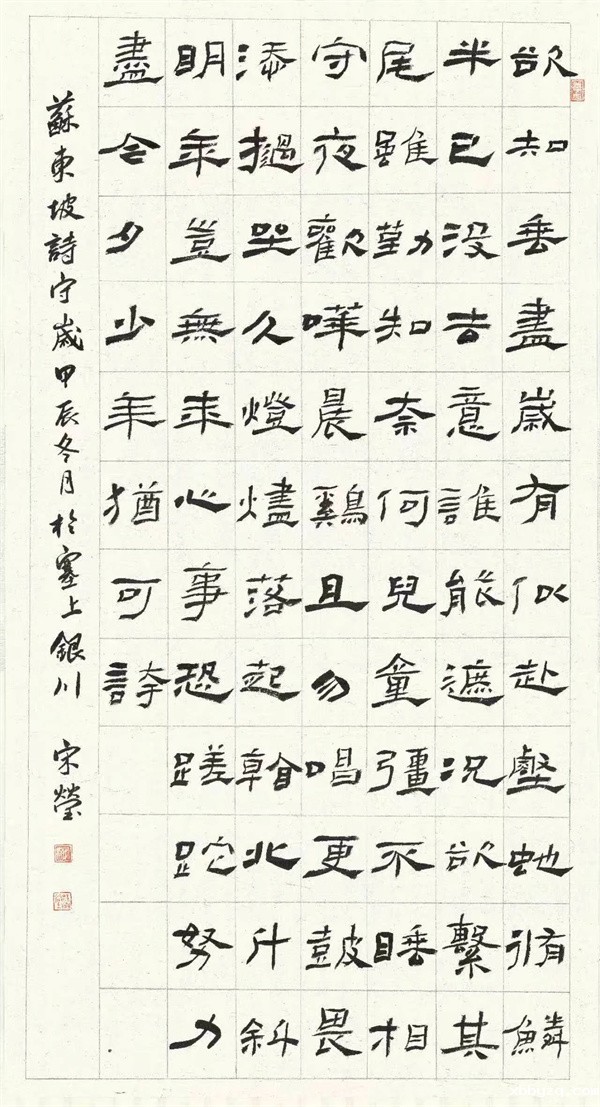 欲知垂盡歲有似赴壑虵脩鱗
半已沒去意誰能遮況欲繫其
尾雖勤知奈何兒童彊不睡相
守夜歡嘩晨鷄且勿唱更鼓畏
添撾坐久燈燼落起看北斗斜
明年豈無年心事恐蹉跎努力
盡今夕少年猶可誇
蘇東坡詩守歲甲辰冬月於塞上銀川 宋瑩